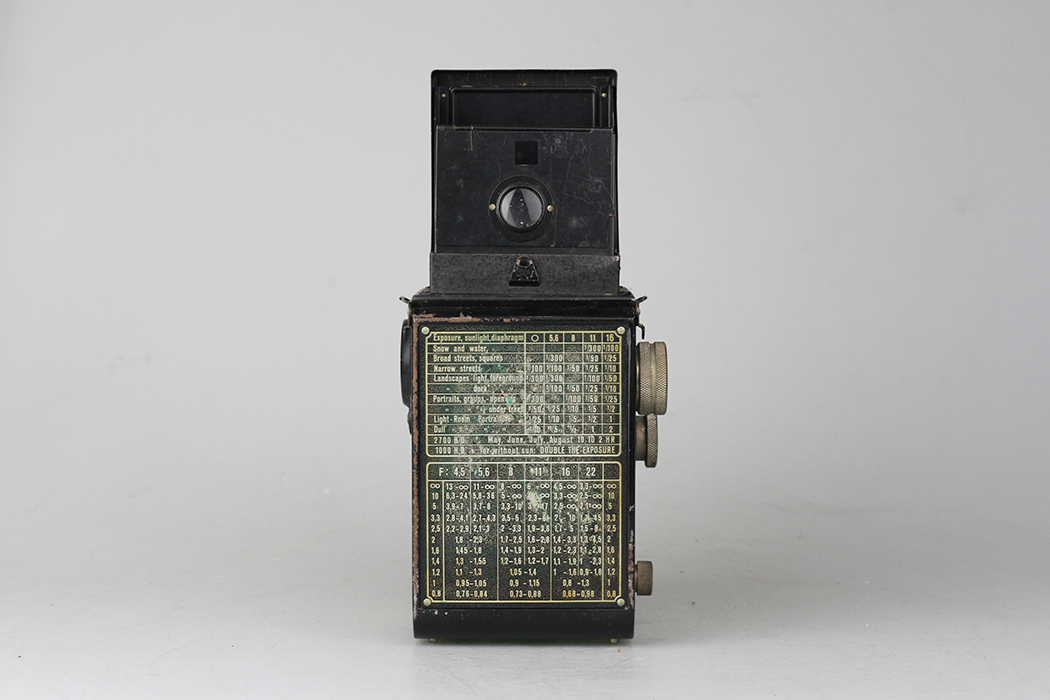 Exposure, sunlight, diaphragm O 5,6 8 11 16
Snow and water, 1/300 1/100
Broad streets, squares 1/300 1/50 1/25
Narrow streets 100 1/100 1/50 1/25 1/10
Landscapes light, foreground 1/300 1/300 1/50 1/25
" dark 1/100 1/50 1/25 1/10
Portraits, groups, open 300 1/100 1/50 1/25
" " under trees 1/50 1/25 1/10 1/5 1/2
Light-Room Portraits 1/25 1/10 1/5 1/2 1
Dull " " 10 1/5 1/2 1 2
2700 H.D. May, June, July, August 10 10 2 HR
1000 H.D. for without sun: DOUBLE THE EXPOSURE
F: 4,5 5,6 8 11 16 22
∞ 13-∞ 11-∞ 8-∞ 6-∞ 4,5-∞ 3,3-∞ ∞
10 6,3-24 5,8-36 5-∞ -∞ 3,3-∞ 2,5-∞ 10
5 3,9-7 3,7-8 3,3-10 3-17 2,5-∞ 2,1-∞ 5
3,3 2,8-4,1 2,7-4,3 3,5-5 2,3-6 10 45 3,3
2,5 2,2-2,9 2,1-3 2-3,3 1,9-3,8 1,7-5 1,5-8 2,5
1,8-2,3 1,7-2,5 1,6-2,8 1,4-3,3 1,3-4,5 2
1,6 1,45-1,8 1,4-1,9 1,3-2 1,2-2,3 1,1-2,8 1,6
1,4 1,3-1,55 1,2-1,6 1,2-1,7 1,1-1,9 1-2,3 1,4
1,2 1,1-1,3 1,05-1,4 1-1,6 0,9-1,8 1,2
1 0,95-1,05 0,9-1,15 0,8-1,3 1
0,8 0,76-0,84 0,73-0,88 0,68-0,98 0,8